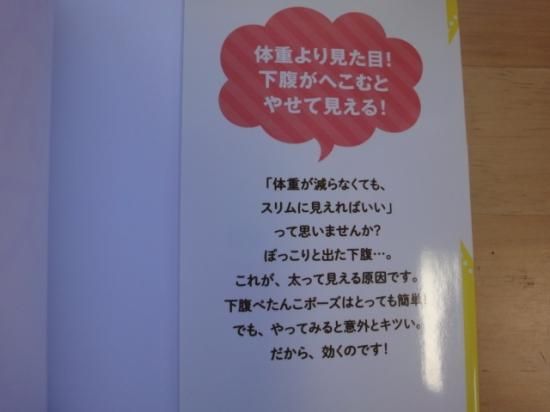 体重より見た目!
下腹がへこむと
やせて見える!
「体重が減らなくても、
スリムに見えればいい」
って思いませんか?
ぽっこりと出た下腹…。
これが、太って見える原因です。
下腹ぺたんこポーズはとっても簡単!
でも、やってみると意外とキツい。
だから、効くのです!